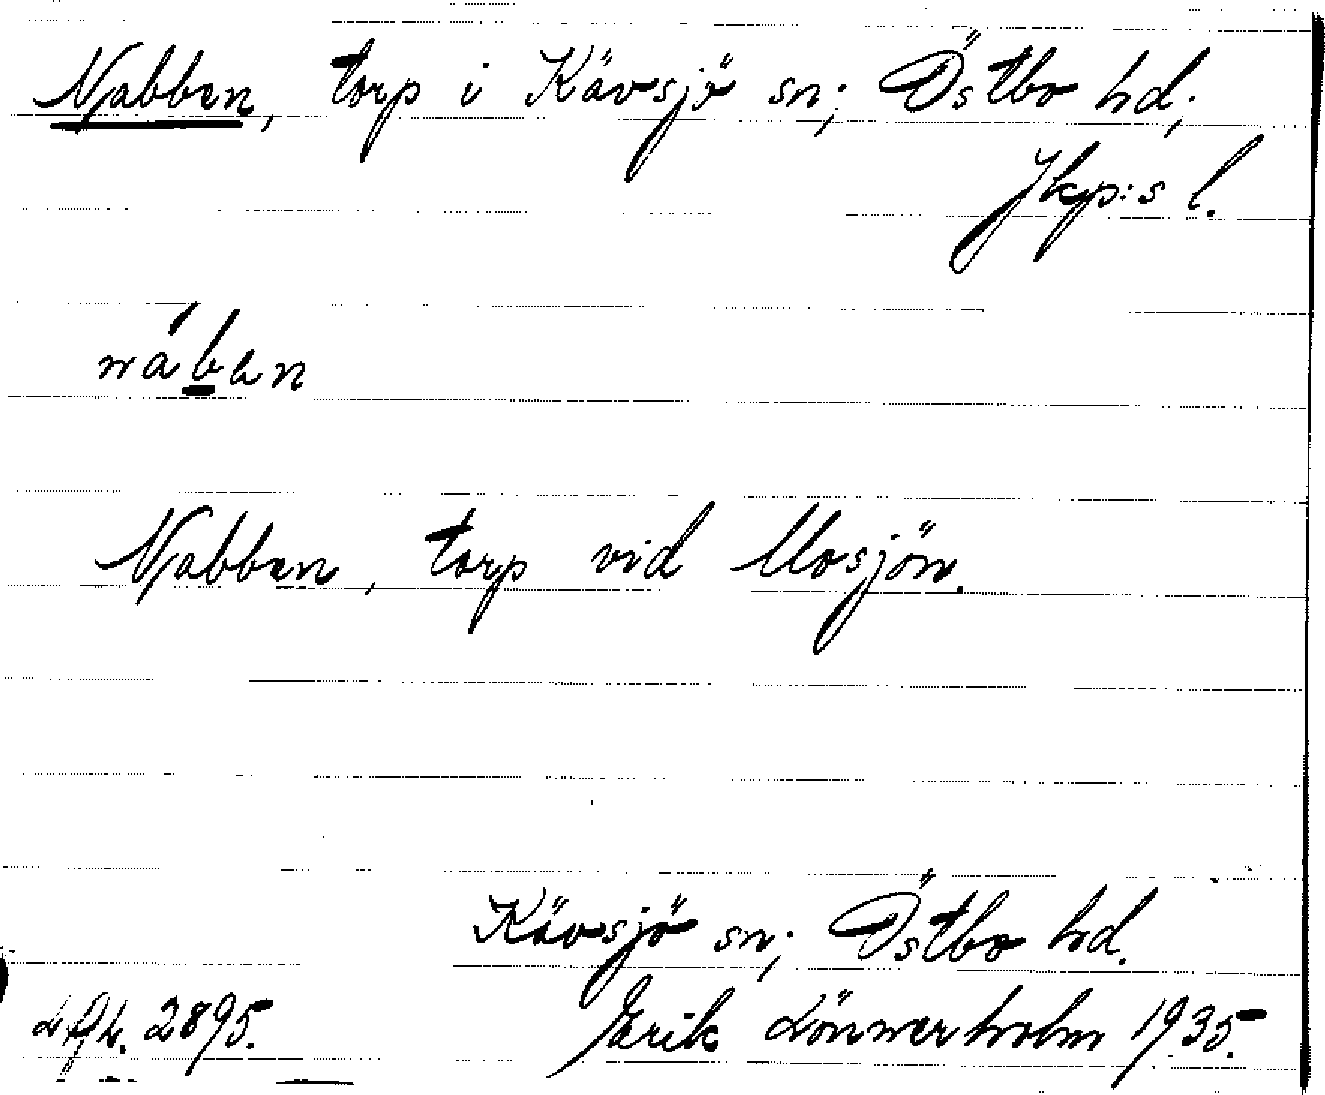 Nabben, torp i Kävsjö sn; Östbo hd;
Jkp:s l.
náben
Nabben, torp vid Mosjön.
Kävsjö sn; Östbo hd.
2895. Erik Lönnerholm 1935.